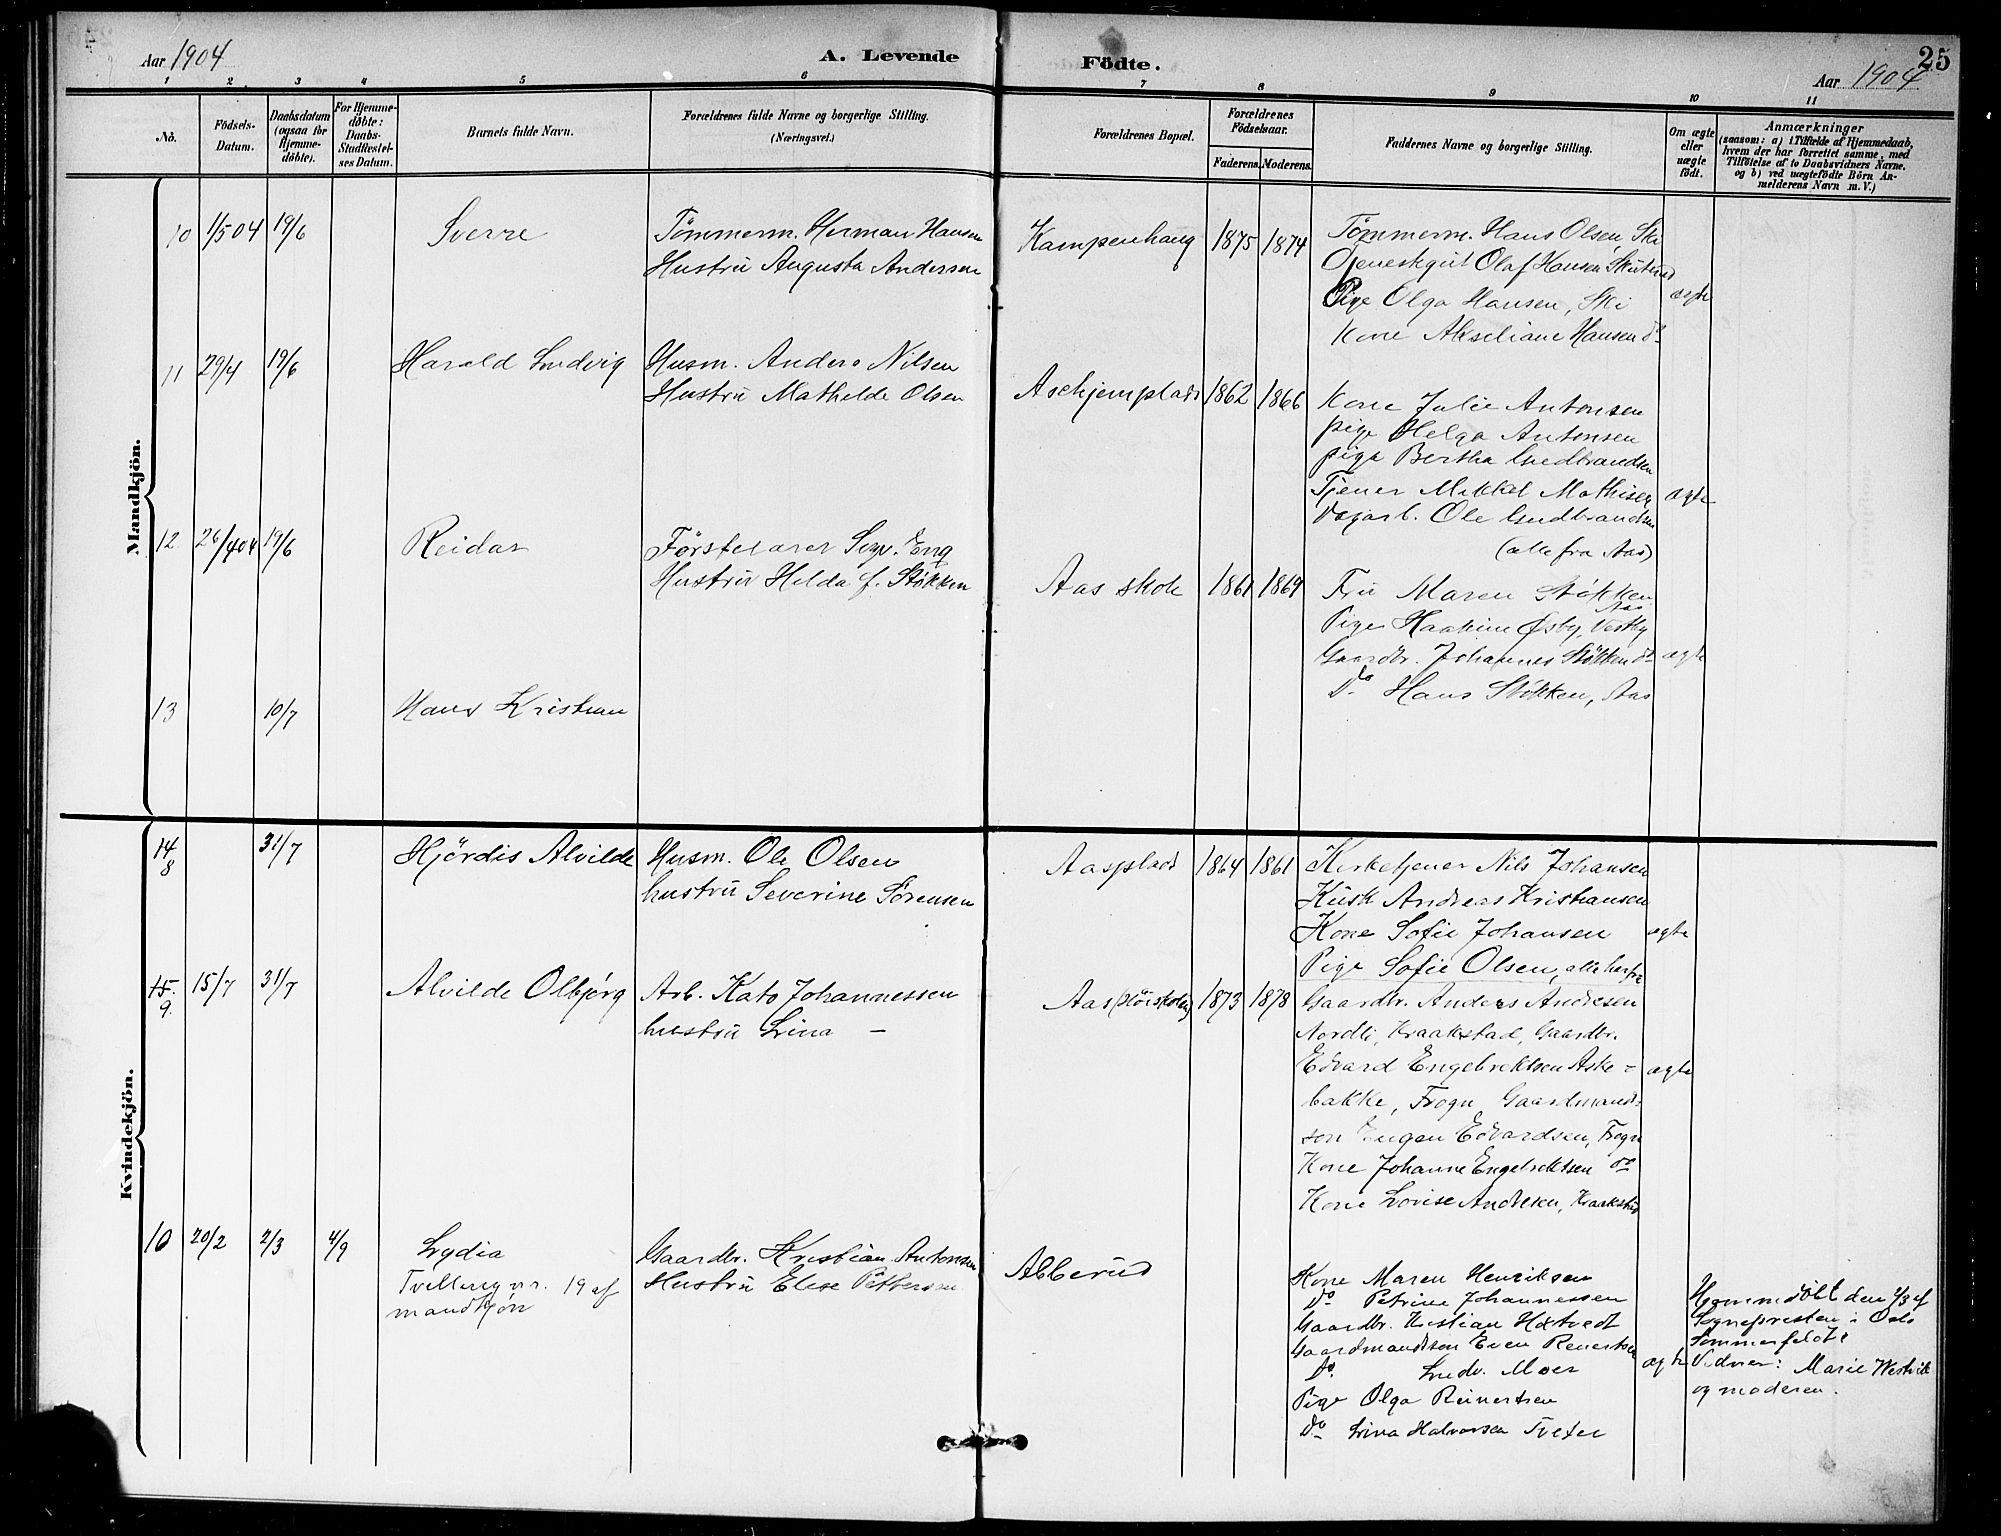 Aar 1904
A. Levende
Födte.
25
Aar 1904
1 2 3 4 5 6 7 8 9 10 11
No.
Födsels-Datum.
Daabsdatum (ogsaa for Hjemmedöbte).
For Hjemmedøbte: Daabs-Stadfæstelses Datum.
Barnets fulde Navn.
Forældrenes fulde Navne og borgerlige Stilling.
(Næringsvei.)
Forældrenes Bopæl.
Forældrenes Födselsaar.
Faderens. Moderens.
Faddernes Navne og borgerlige Stilling.
Om ægte eller uægte födt.
Anmærkninger
(saasom: a) i Tilfælde af Hjemmedaab, hvem der har forrettet samme, med Tilföielse af to Daabsvidners Navne. og b) ved uægtefödte Börn Anmelderens Navn m. V.)
Mandkjön.
10 1/5 04 19/6 Sverre
Tømmerm. Herman Hansen
Hustru Augusta Andersen
Kampenhaug 1875 1874
Tømmerm. Hans Olsen, Ski
Olaf Hansen
Pige Olga Hansen, Ski
Kone Akseliane Hansen do
ægte
11 29/4 19/6 Harald Ludvig
Husm. Anders Nilsen
Hustru Mathilde Olsen
Aschjemplads 1862 1866
Kone Julie Antonsen
pige Helga Antonsen
pige Bertha Gudbrandsen
Tjener Mikkel Mathisen
Dagarb. Ole Gudbrandsen
(alle fra Aas)
ægte
12 26/4 04 19/6 Reidar
Førstelærer Eng
Hustru Helda f. Støkken
Aas skole 1861 1869
Fru Maren Støkken
Aas
Pige Haakine Østby, Vestby
Gaardbr. Johannes Støkken do
Do Hans Støkken, Aas
ægte
13 10/7 Hans Kristian
Kvindekjön.
14
8 31/7 Hjördis Alvilde
Husm. Ole Olsen
hustru Severine Sørensen
Aasplads 1864 1861
Kirketjener Nils Johansen
Kusk Andreas Kristiansen
Kone Sofie Johansen
Pige Sofie Olsen, alle herfra
ægte
15.
9. 15/7 31/7 Alvilde Olbjørg
Arb. Kato Johannessen
hustru Lina –
Aas 1873 1878
Gaardbr. Anders Andresen
Nordli, Kraakstad, Gaardbr.
Edvard Engebrektsen Aske-
bakke, Frogn, Gaardmands-
son Eugen Edvardsen, Frogn
Kone Johanne Engebrektsen do
Kone Lovise Andresen, Kraakstad
ægte
10 20/2 2/3 4/9 Lydia
Tvilling nr. 19 af
mandkjøn
Gaardbr. Kristian Antonsen
Hustru Elise Pettersen
Abberud
Kone Maren Henriksen
Do Petrine Johannessen
Gaardbr. Kristian Hotvedt
Gaardmandssøn Even Reinertsen
Do. Ludv. Moer
Pige Olga Reinertsen
Do Lina Halvorsen Tveter
ægte
Hjemmedöbt den 2/3 af
Sognepresten i Oslo
Sommerfeldt
Vidner: Marie Westvik
og moderen.